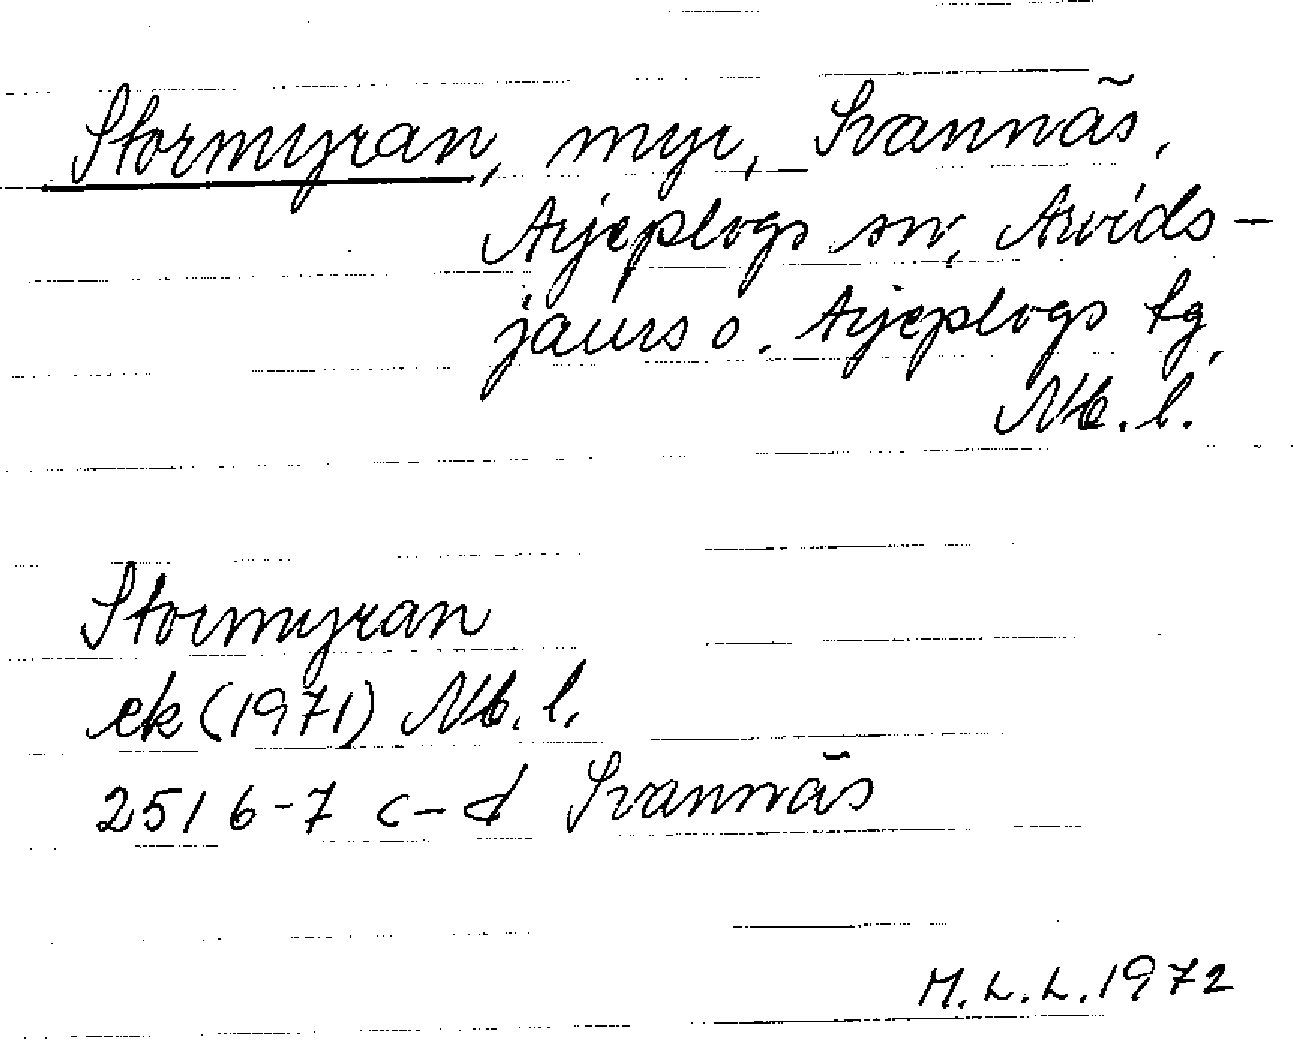 Stormyran, myr, Svannäs,
Arjeplogs sn, Arvids-
jaurs o. Arjeplogs tg,
Nb. l.
Stormyran
ek (1971) Nb. l.
2516-7 c-d Svannäs
M.L.L. 1972